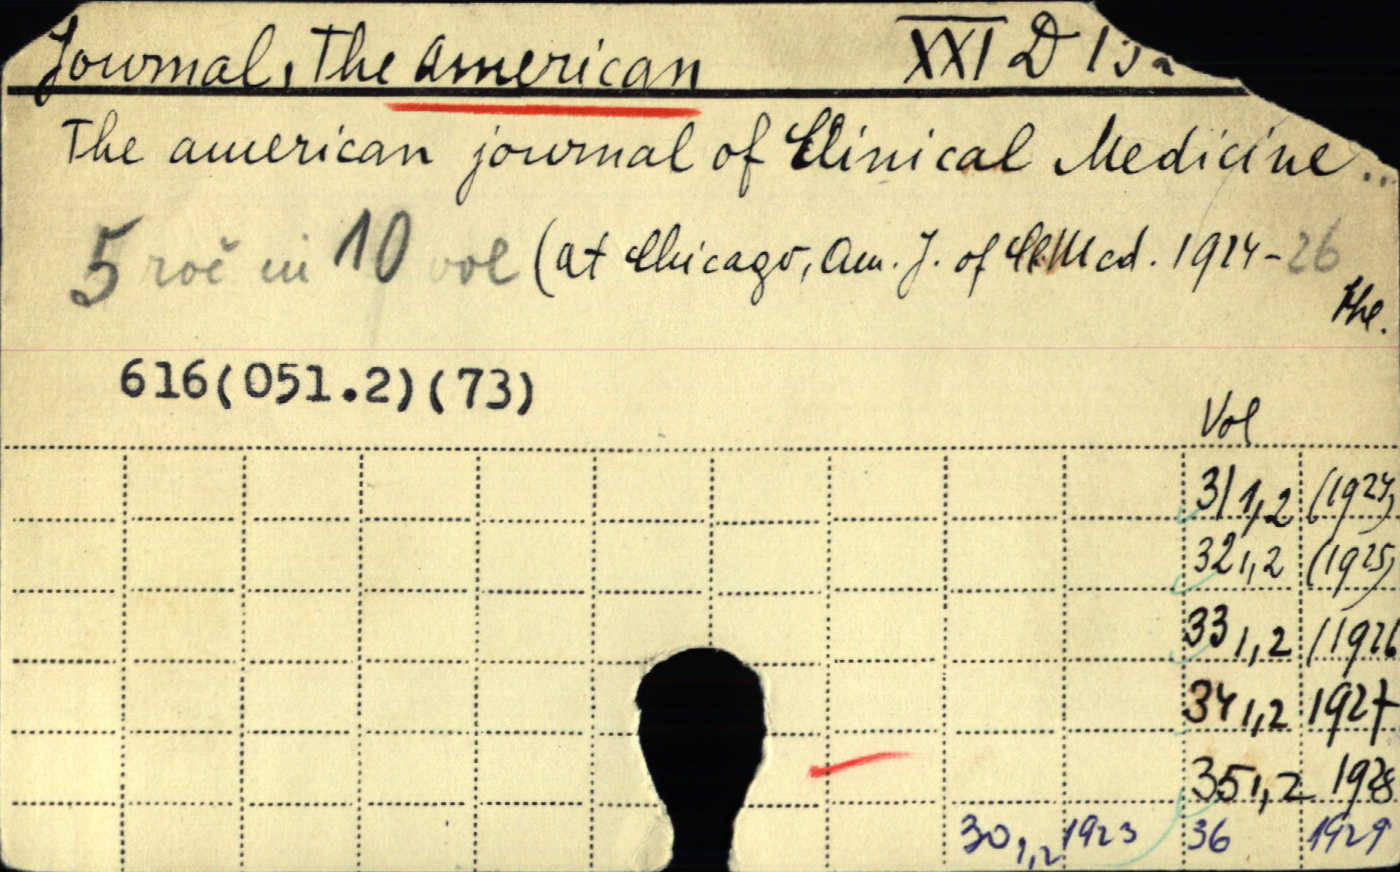 Journal, The American XXI D 13a
The american journal of Clinical Medicine ..
5 roč in 10 vol (at Chicago, Am. J. of Cl. Med. 1924-26
the.
616(051.2)(73)
Vol
31 1,2 (1924)
32 1,2 (1925)
33 1,2 (1926
34 1,2 1927
35 1,2 1928
30 1,2 1923 36 1929